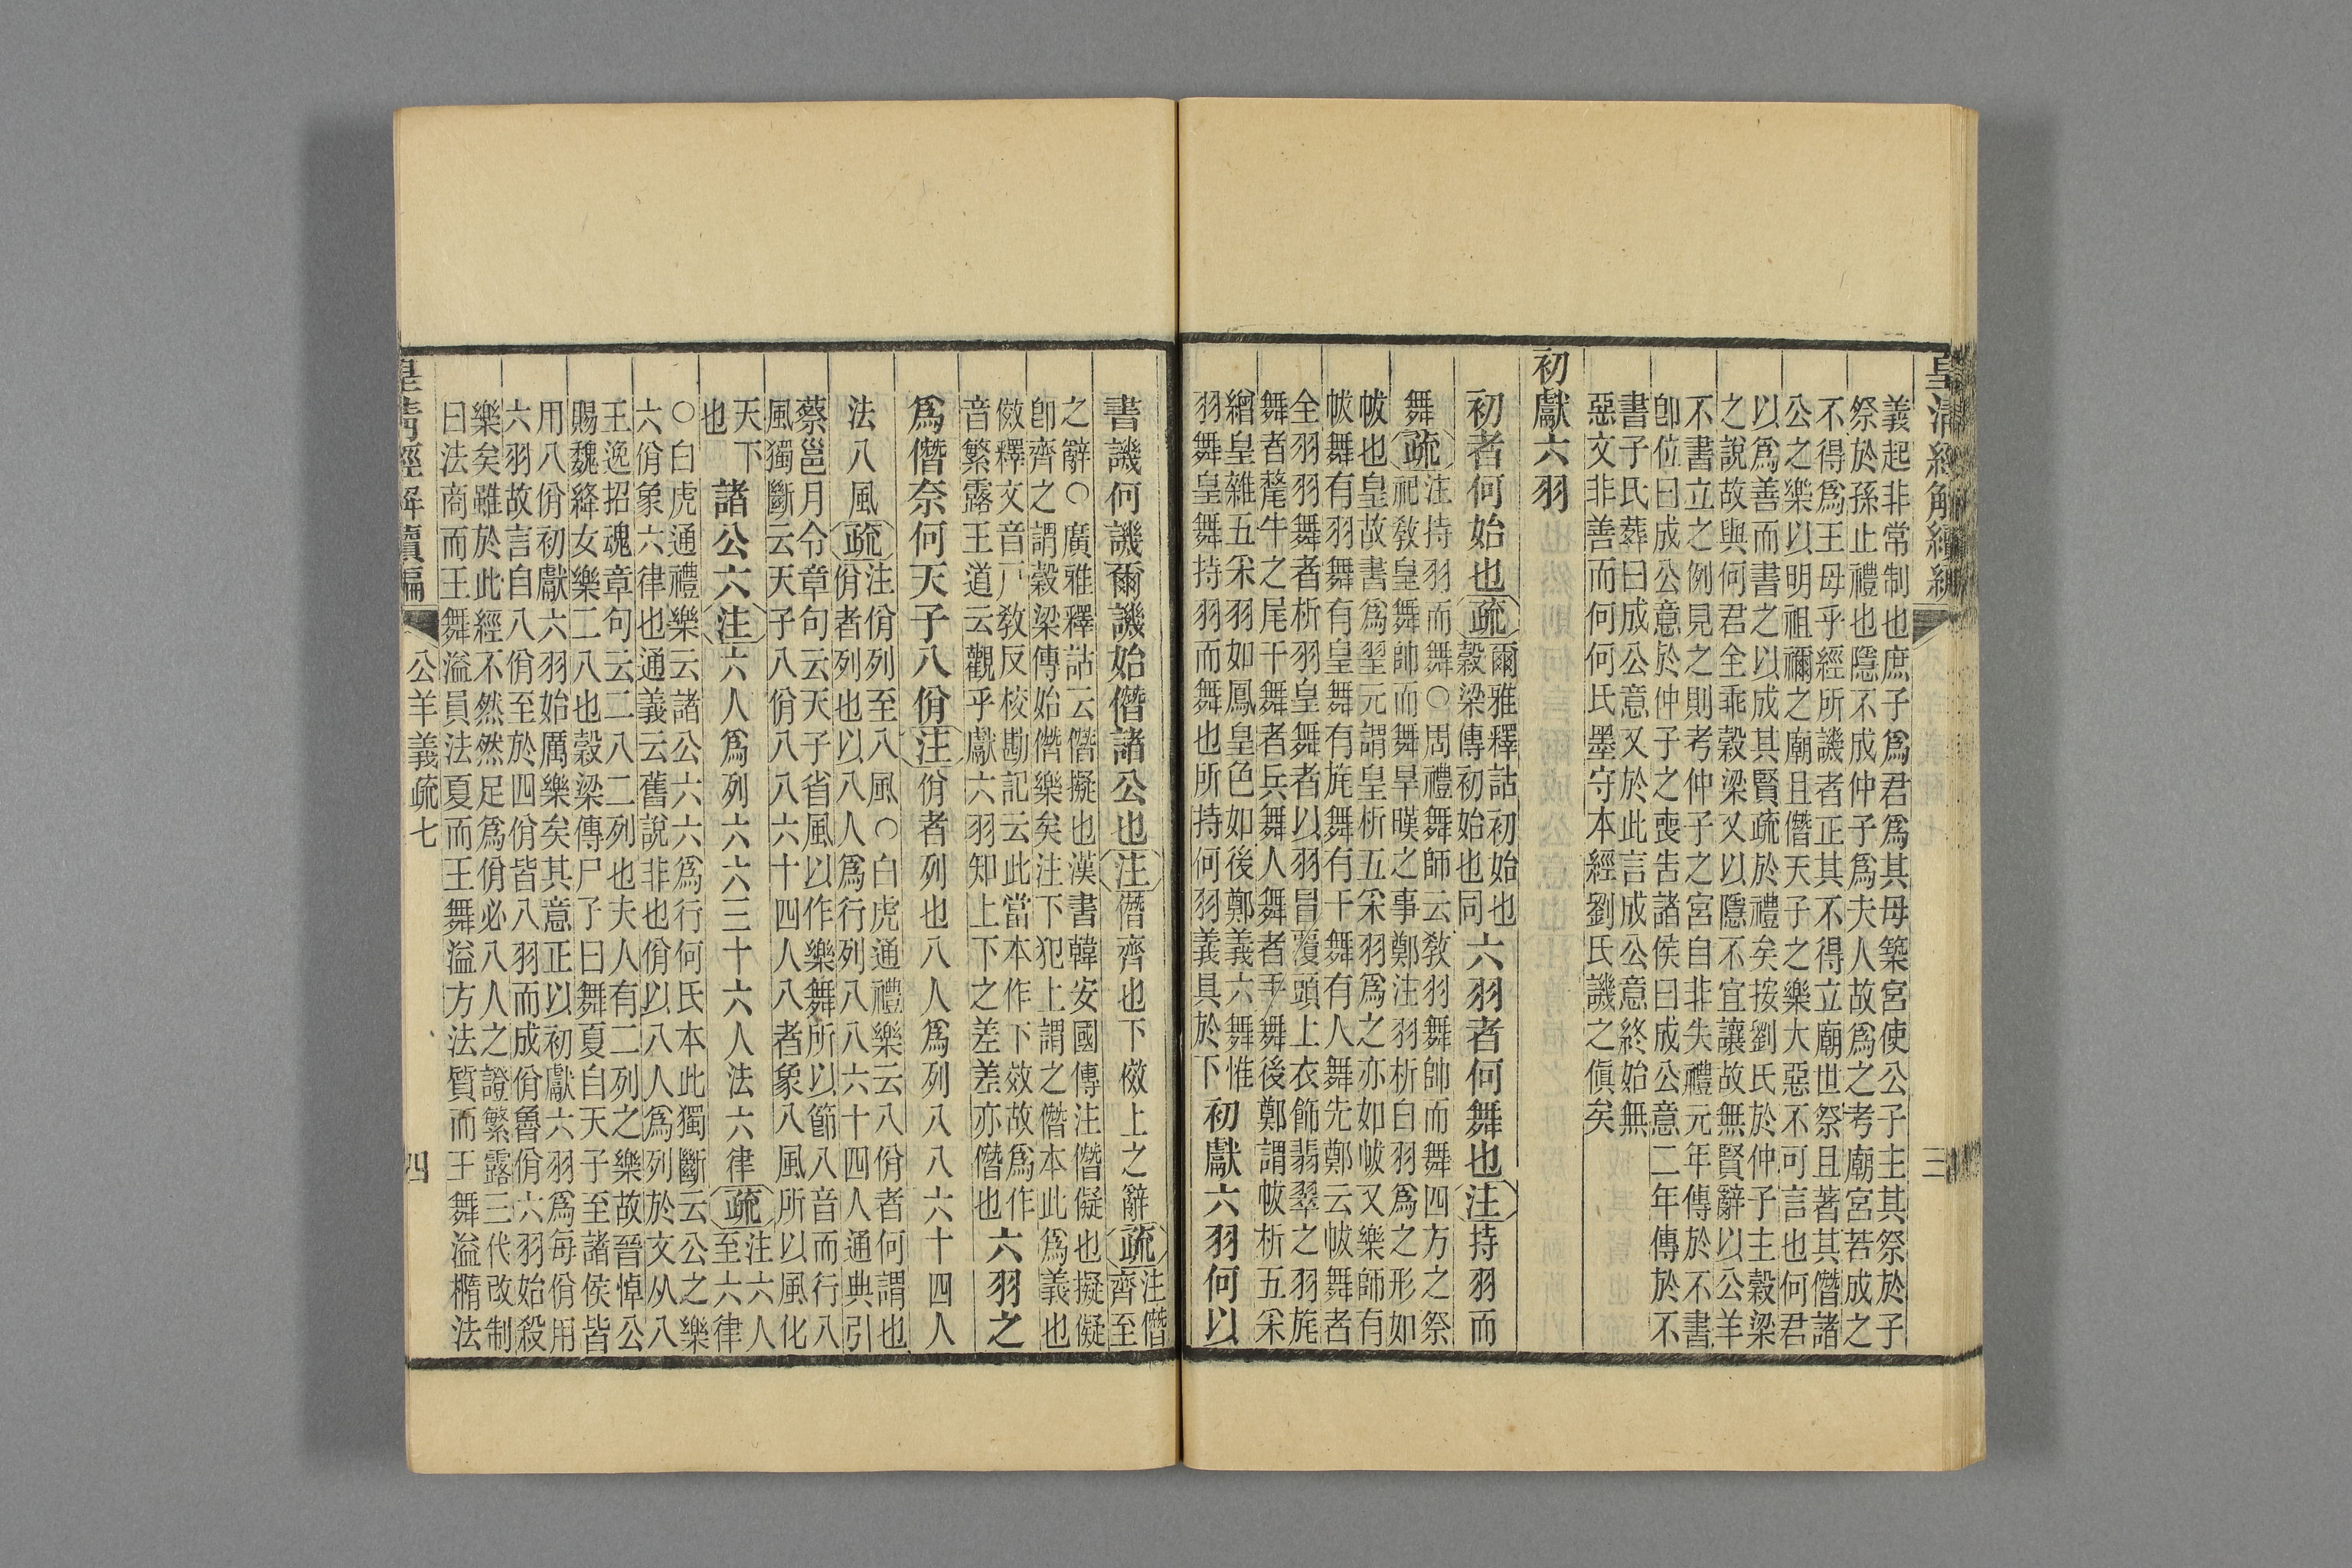 皇清經解續編
三
義起非常制也庶子爲君爲其母築宮使公子主其祭於子
祭於孫止禮也隱不成仲子爲夫人故爲之考廟宮若成之
不得爲王母乎經所譏者正其不得立廟世祭且著其僭諸
公之樂以明祖禰之廟且僭天子之樂大惡不可言也何君
以爲善而書之以成其賢疏於禮矣按劉氏於仲子主穀梁
之說故與何君全乖穀梁又以隱不宜讓故無賢辭以公羊
不書立之例見之則考仲子之宮自非失禮元年傳於不書
卽位曰成公意於仲子之喪吿諸侯曰成公意二年傳於不
書子氏葬曰成公意又於此言成公意終始無
惡文非善而何何氏墨守本經劉氏譏之傎矣
初獻六羽
初者何始也疏爾雅釋詁初始也
穀梁傳初始也同六羽者何舞也注持羽而
舞疏注持羽而舞○周禮舞師云敎羽舞帥而舞四方之祭
祀敎皇舞帥而舞旱暵之事鄭注羽析白羽爲之形如
帗也皇故書爲䍿元謂皇析五采羽爲之亦如帗又樂師有
帗舞有羽舞有皇舞有旄舞有干舞有人舞先鄭云帗舞者
全羽羽舞者析羽皇舞者以羽冒覆頭上衣飾翡翠之羽旄
舞者氂牛之尾干舞者兵舞人舞者手舞後鄭謂帗析五采
繒皇雜五采羽如鳳皇色如後鄭義六舞惟
羽舞皇舞持羽而舞也所持何羽義具於下初獻六羽何以
書譏何譏爾譏始僭諸公也注僭齊也下倣上之辭疏注僭
齊至
之辭○廣雅釋詁云僭擬也漢書韓安國傳注僭儗也擬儗
卽齊之謂穀梁傳始僭樂矣注下犯上謂之僭本此爲義也
倣釋文音戸敎反校勘記云此當本作下效故爲作
音繁露王道云觀乎獻六羽知上下之差差亦僭也六羽之
爲僭奈何天子八佾注佾者列也八人爲列八八六十四人
法八風疏注佾列至八風○白虎通禮樂云八佾者何謂也
佾者列也以八人爲行列八八六十四人通典引
蔡邕月令章句云天子省風以作樂舞所以節八音而行八
風獨斷云天子八佾八八六十四人八者象八風所以風化
天下
也諸公六注六人爲列六六三十六人法六律疏注六人
至六律
○白虎通禮樂云諸公六六爲行何氏本此獨斷云公之樂
六佾象六律也通義云舊說非也佾以八人爲列於文从八
王逸招魂章句云二八二列也夫人有二列之樂故晉悼公
賜魏絳女樂二八也穀梁傳尸子曰舞夏自天子至諸侯皆
用八佾初獻六羽始厲樂矣其意正以初獻六羽爲每佾用
六羽故言自八佾至於四佾皆八羽而成佾魯佾六羽始殺
樂矣雖於此經不然然足爲佾必八人之證繁露三代改制
曰法商而王舞溢員法夏而王舞溢方法質而王舞溢橢法
皇清經解續編
公羊義疏七
四